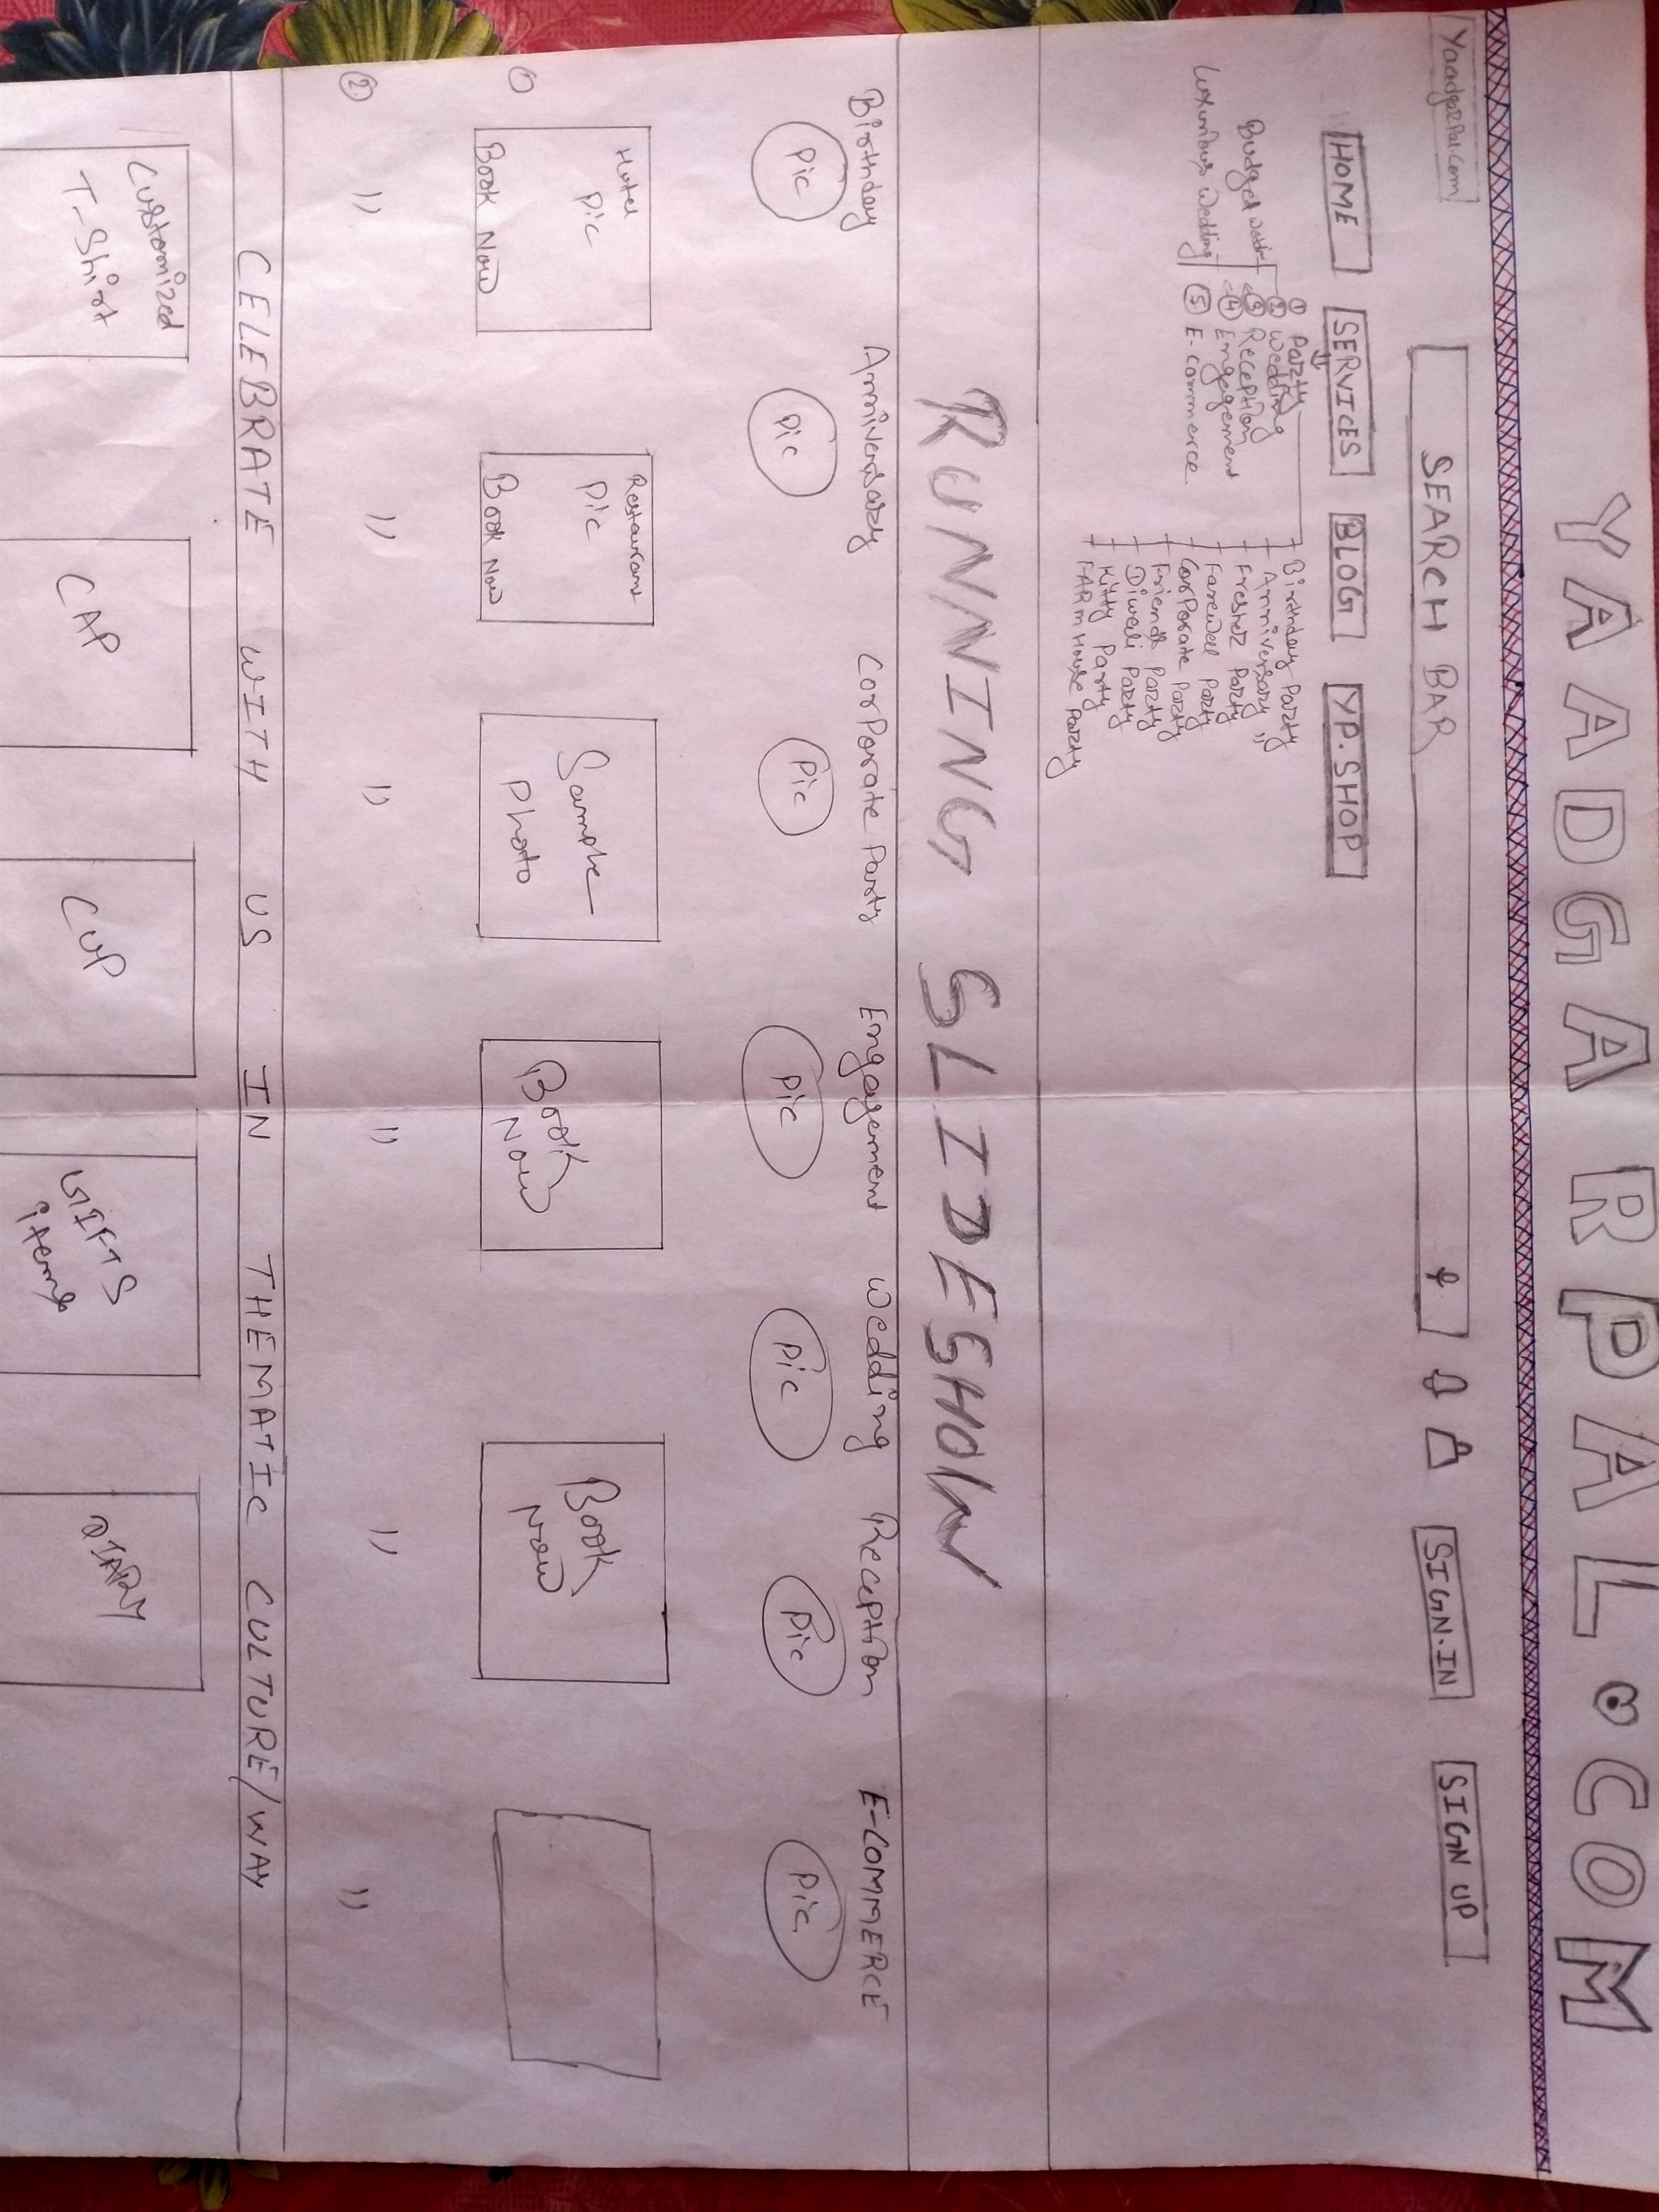 YAADGARPAL.COM
YaadgarPal.Com
SEARCH BAR
SIGN-IN
SIGN UP
HOME
SERVICES
BLOG
YP.SHOP
① Party
② Wedding
③ Reception
④ Engagement
⑤ E-commerce
Budget
Luxurious Wedding
Birthday Party
Anniversary "
Fresher Party
Farewell Party
Corporate Party
Friends Party
Diwali Party
Kitty Party
FARm House Party
RUNNING SLIDESHOW
Birthday Anniversary Corporate Party Engagement Wedding Reception E-COMMERCE
Pic Pic Pic Pic Pic Pic Pic
Hotel
Pic
Book Now
Restaurant
Pic
Book Now
Sample
Photo
Book
Now
Book
Now
② " " " " " "
CELEBRATE WITH US IN THEMATIC CULTURE/WAY
Customized
T-Shirt
CAP
CUP
GIFTS
items
DIARY